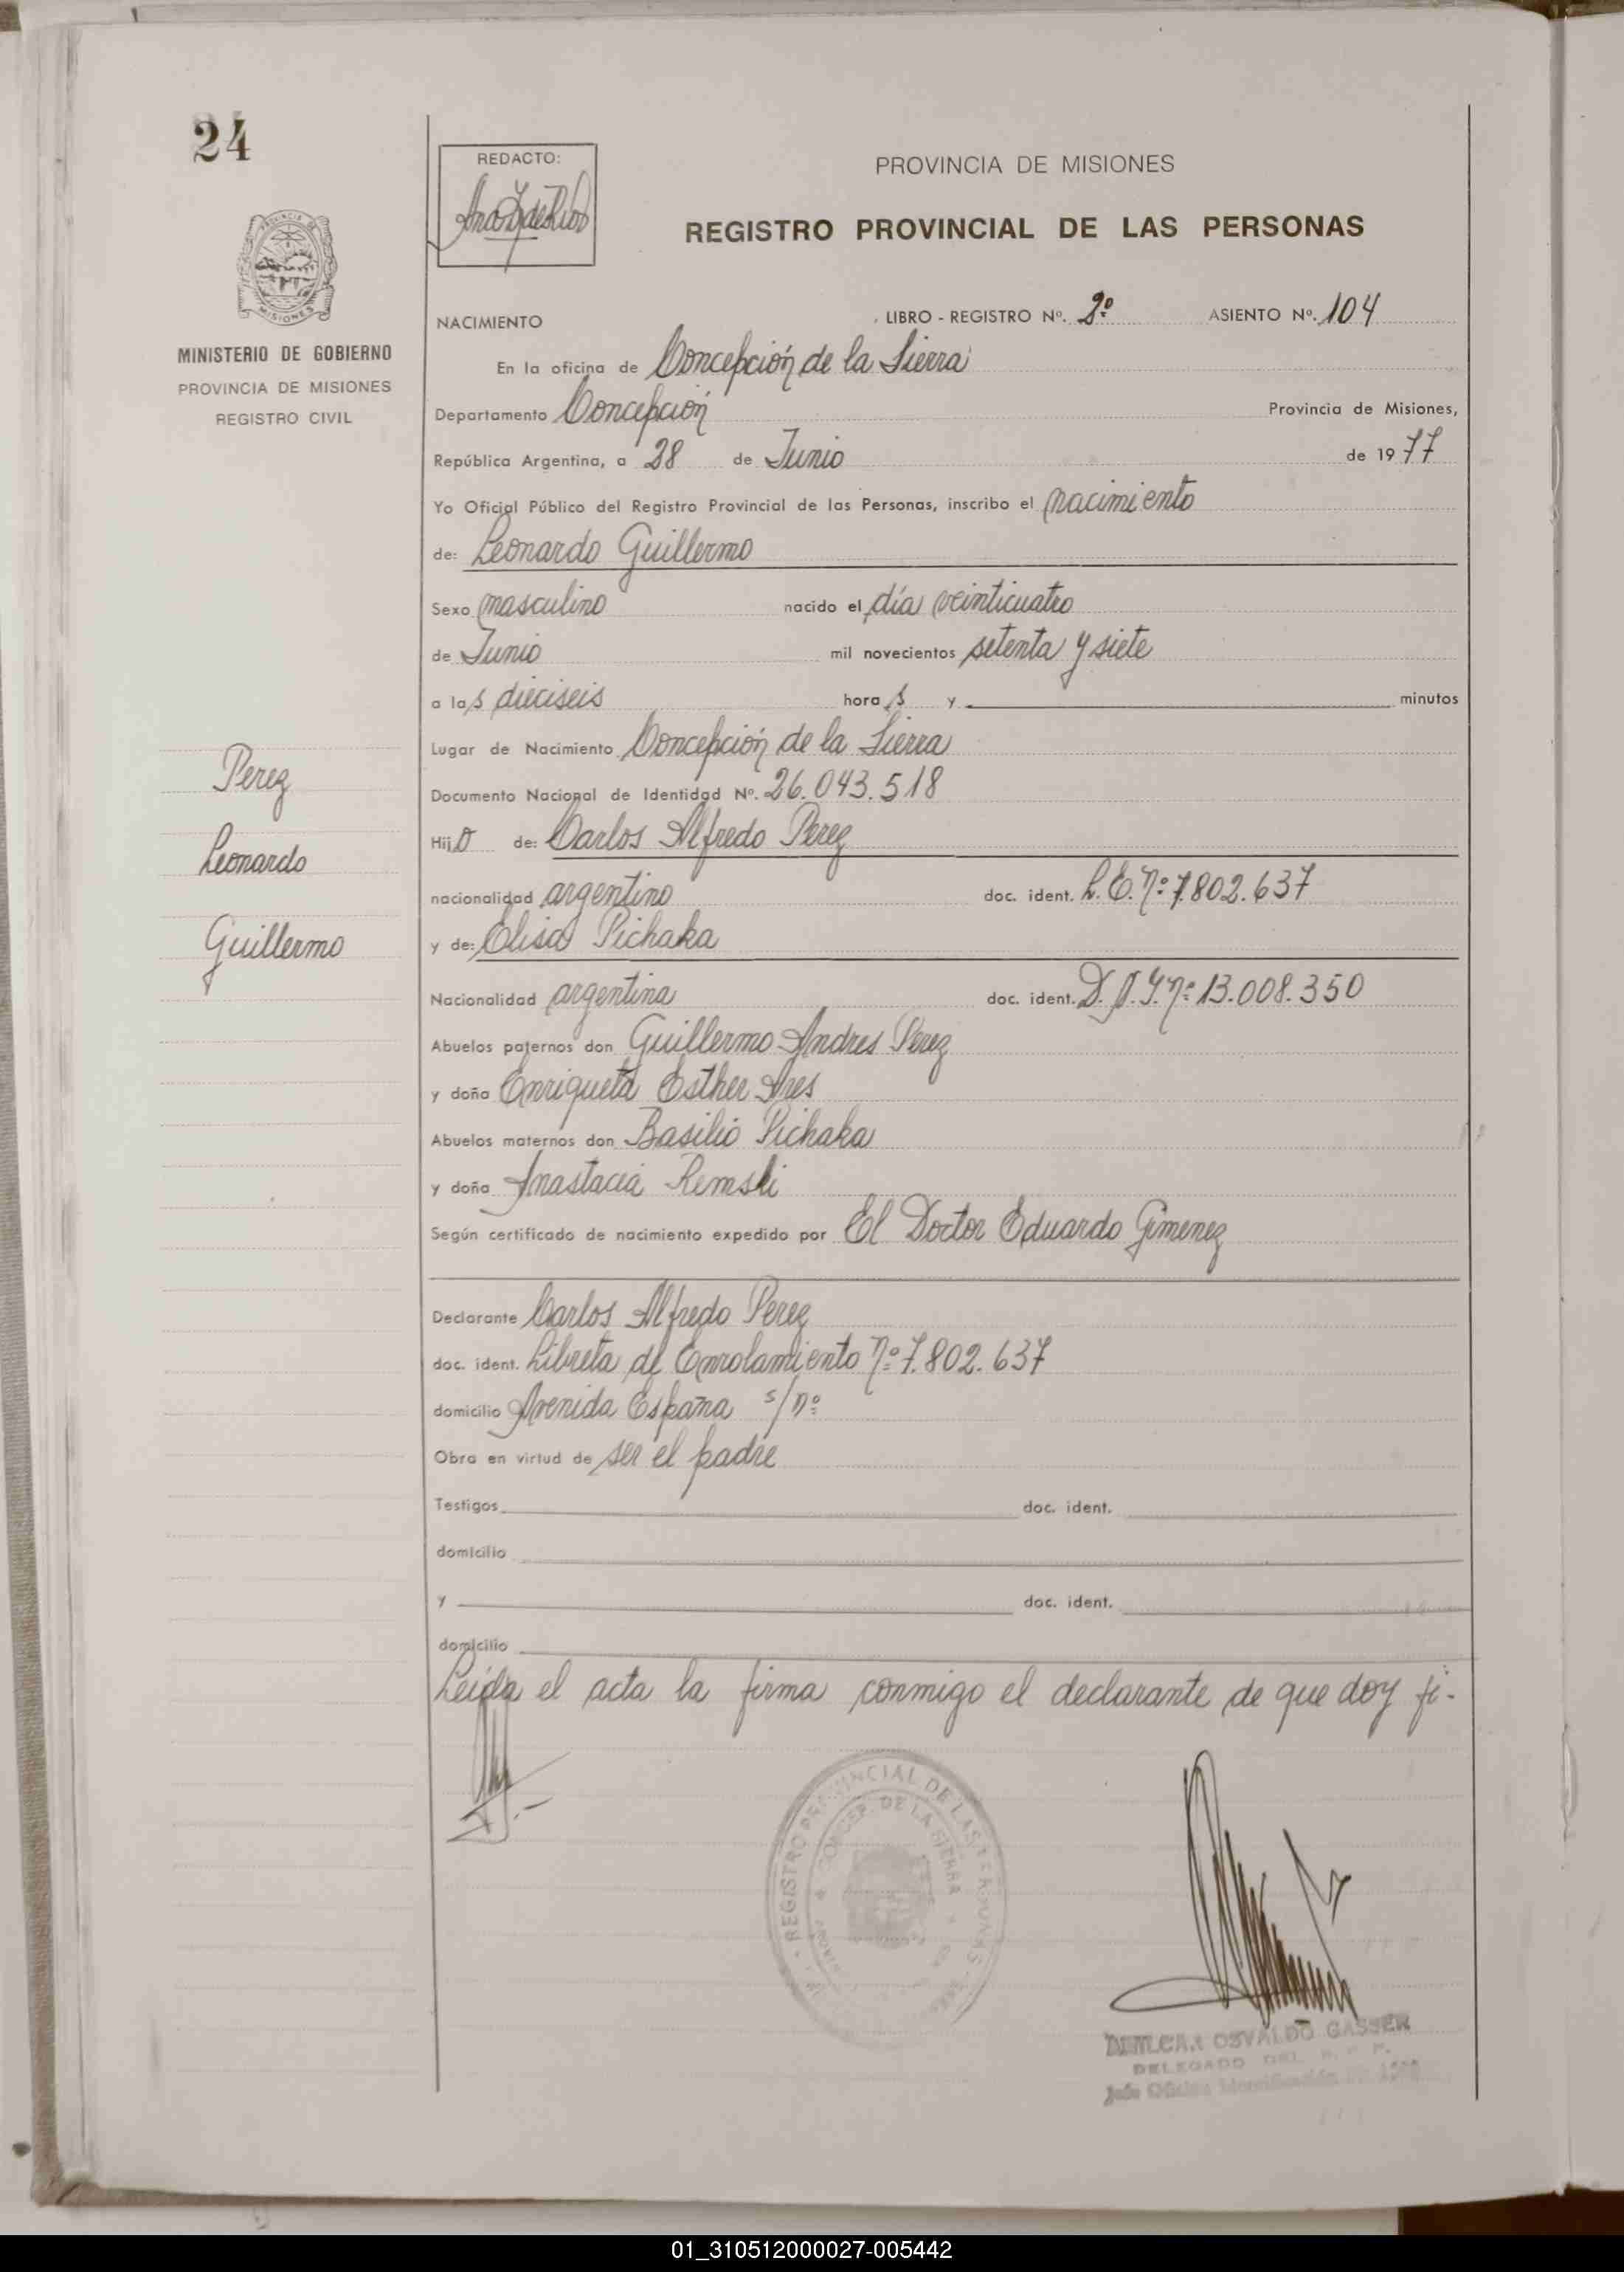 24
REDACTO:
PROVINCIA DE MISIONES
REGISTRO PROVINCIAL DE LAS PERSONAS
MISIONES
MINISTERIO DE GOBIERNO
PROVINCIA DE MISIONES
REGISTRO CIVIL
NACIMIENTO LIBRO - REGISTRO Nº. 2º ASIENTO Nº. 104
En la oficina de Concepción de la Sierra
Departamento Concepción Provincia de Misiones,
República Argentina, a 28 de Junio de 1977
Yo Oficial Público del Registro Provincial de las Personas, inscribo el nacimiento
de: Leonardo Guillermo
Sexo masculino nacido el día veinticuatro
de Junio mil novecientos setenta y siete
a las dieciseis horas y minutos
Lugar de Nacimiento Concepción de la Sierra
Documento Nacional de Identidad Nº. 26.043.518
Hijo de: Carlos Alfredo Perez
nacionalidad argentino doc. ident. L.E. nº 7.802.637
y de: Elisa Pichaka
Nacionalidad argentina doc. ident. D.N.I. nº 13.008.350
Abuelos paternos don Guillermo Andres Perez
y doña Enriqueta Esther Ares
Abuelos maternos don Basilio Pichaka
y doña Anastacia Remski
Según certificado de nacimiento expedido por El Doctor Eduardo Gimenez
Perez
Leonardo
Guillermo
Declarante Carlos Alfredo Perez
doc. ident. Libreta de Enrolamiento nº 7.802.637
domicilio Avenida España s/nº
Obra en virtud de ser el padre
Testigos doc. ident.
domicilio
y doc. ident.
domicilio
Leída el acta la firma conmigo el declarante de que doy fe.-
REGISTRO PROVINCIAL DE LAS PERSONAS
CONCEP. DE LA SIERRA
OSVALDO GASSER
DELEGADO DEL R. P. P.
Jefe Oficina Identificación
01_310512000027-005442